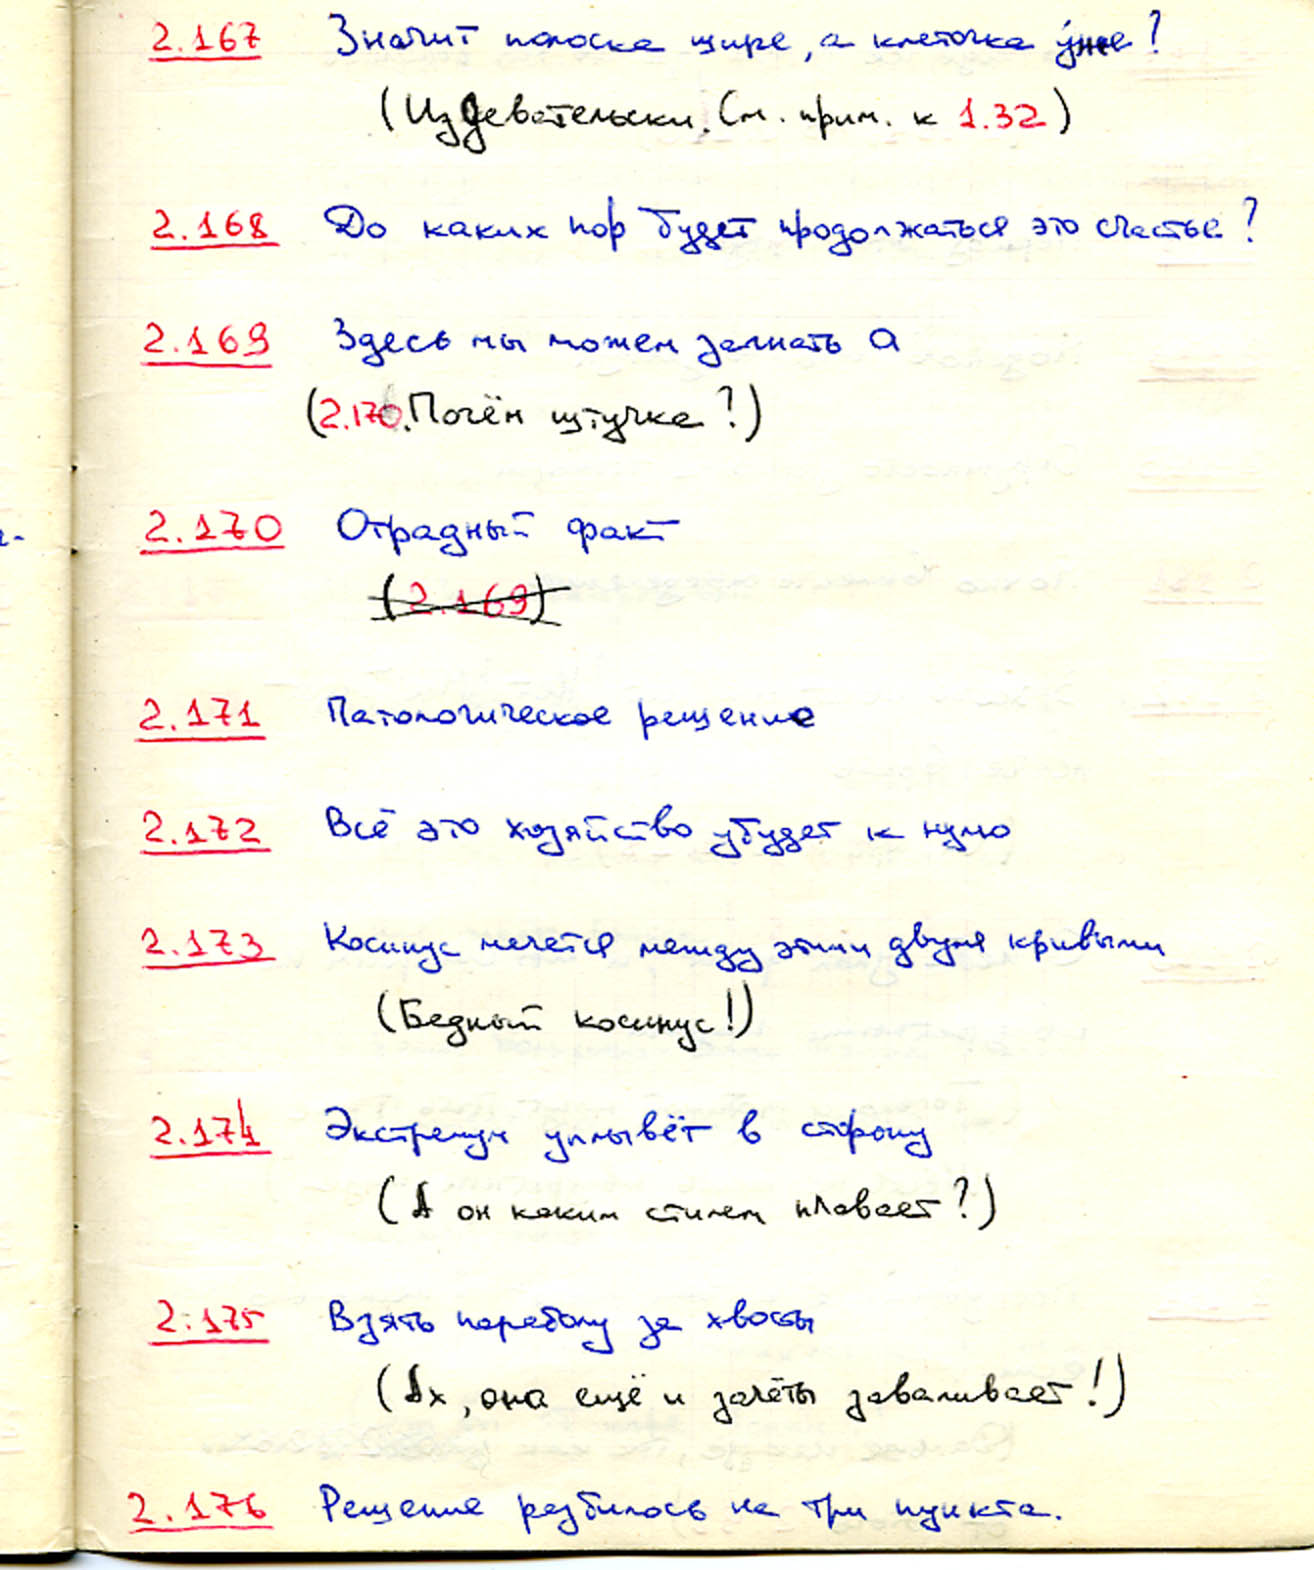 2.167 Значит полоска шире, а клеточка у́же?
(Издевательски. См. прим. к 1.32)
2.168 До каких пор будет продолжаться это счастье?
2.169 Здесь мы можем загнать a
(2.170. Почём штучка?)
2.170 Отрадный факт
(2.169)
2.171 Патологическое решение
2.172 Всё это хозяйство убудет к нулю
2.173 Косинус мечется между этими двумя кривыми
(Бедный косинус!)
2.174 Экстремум уплывёт в сторону
(А он каким стилем плавает?)
2.175 Взять параболу за хвосты
(Ах, она ещё и зачёты заваливает!)
2.176 Решение разбилось на три пункта.